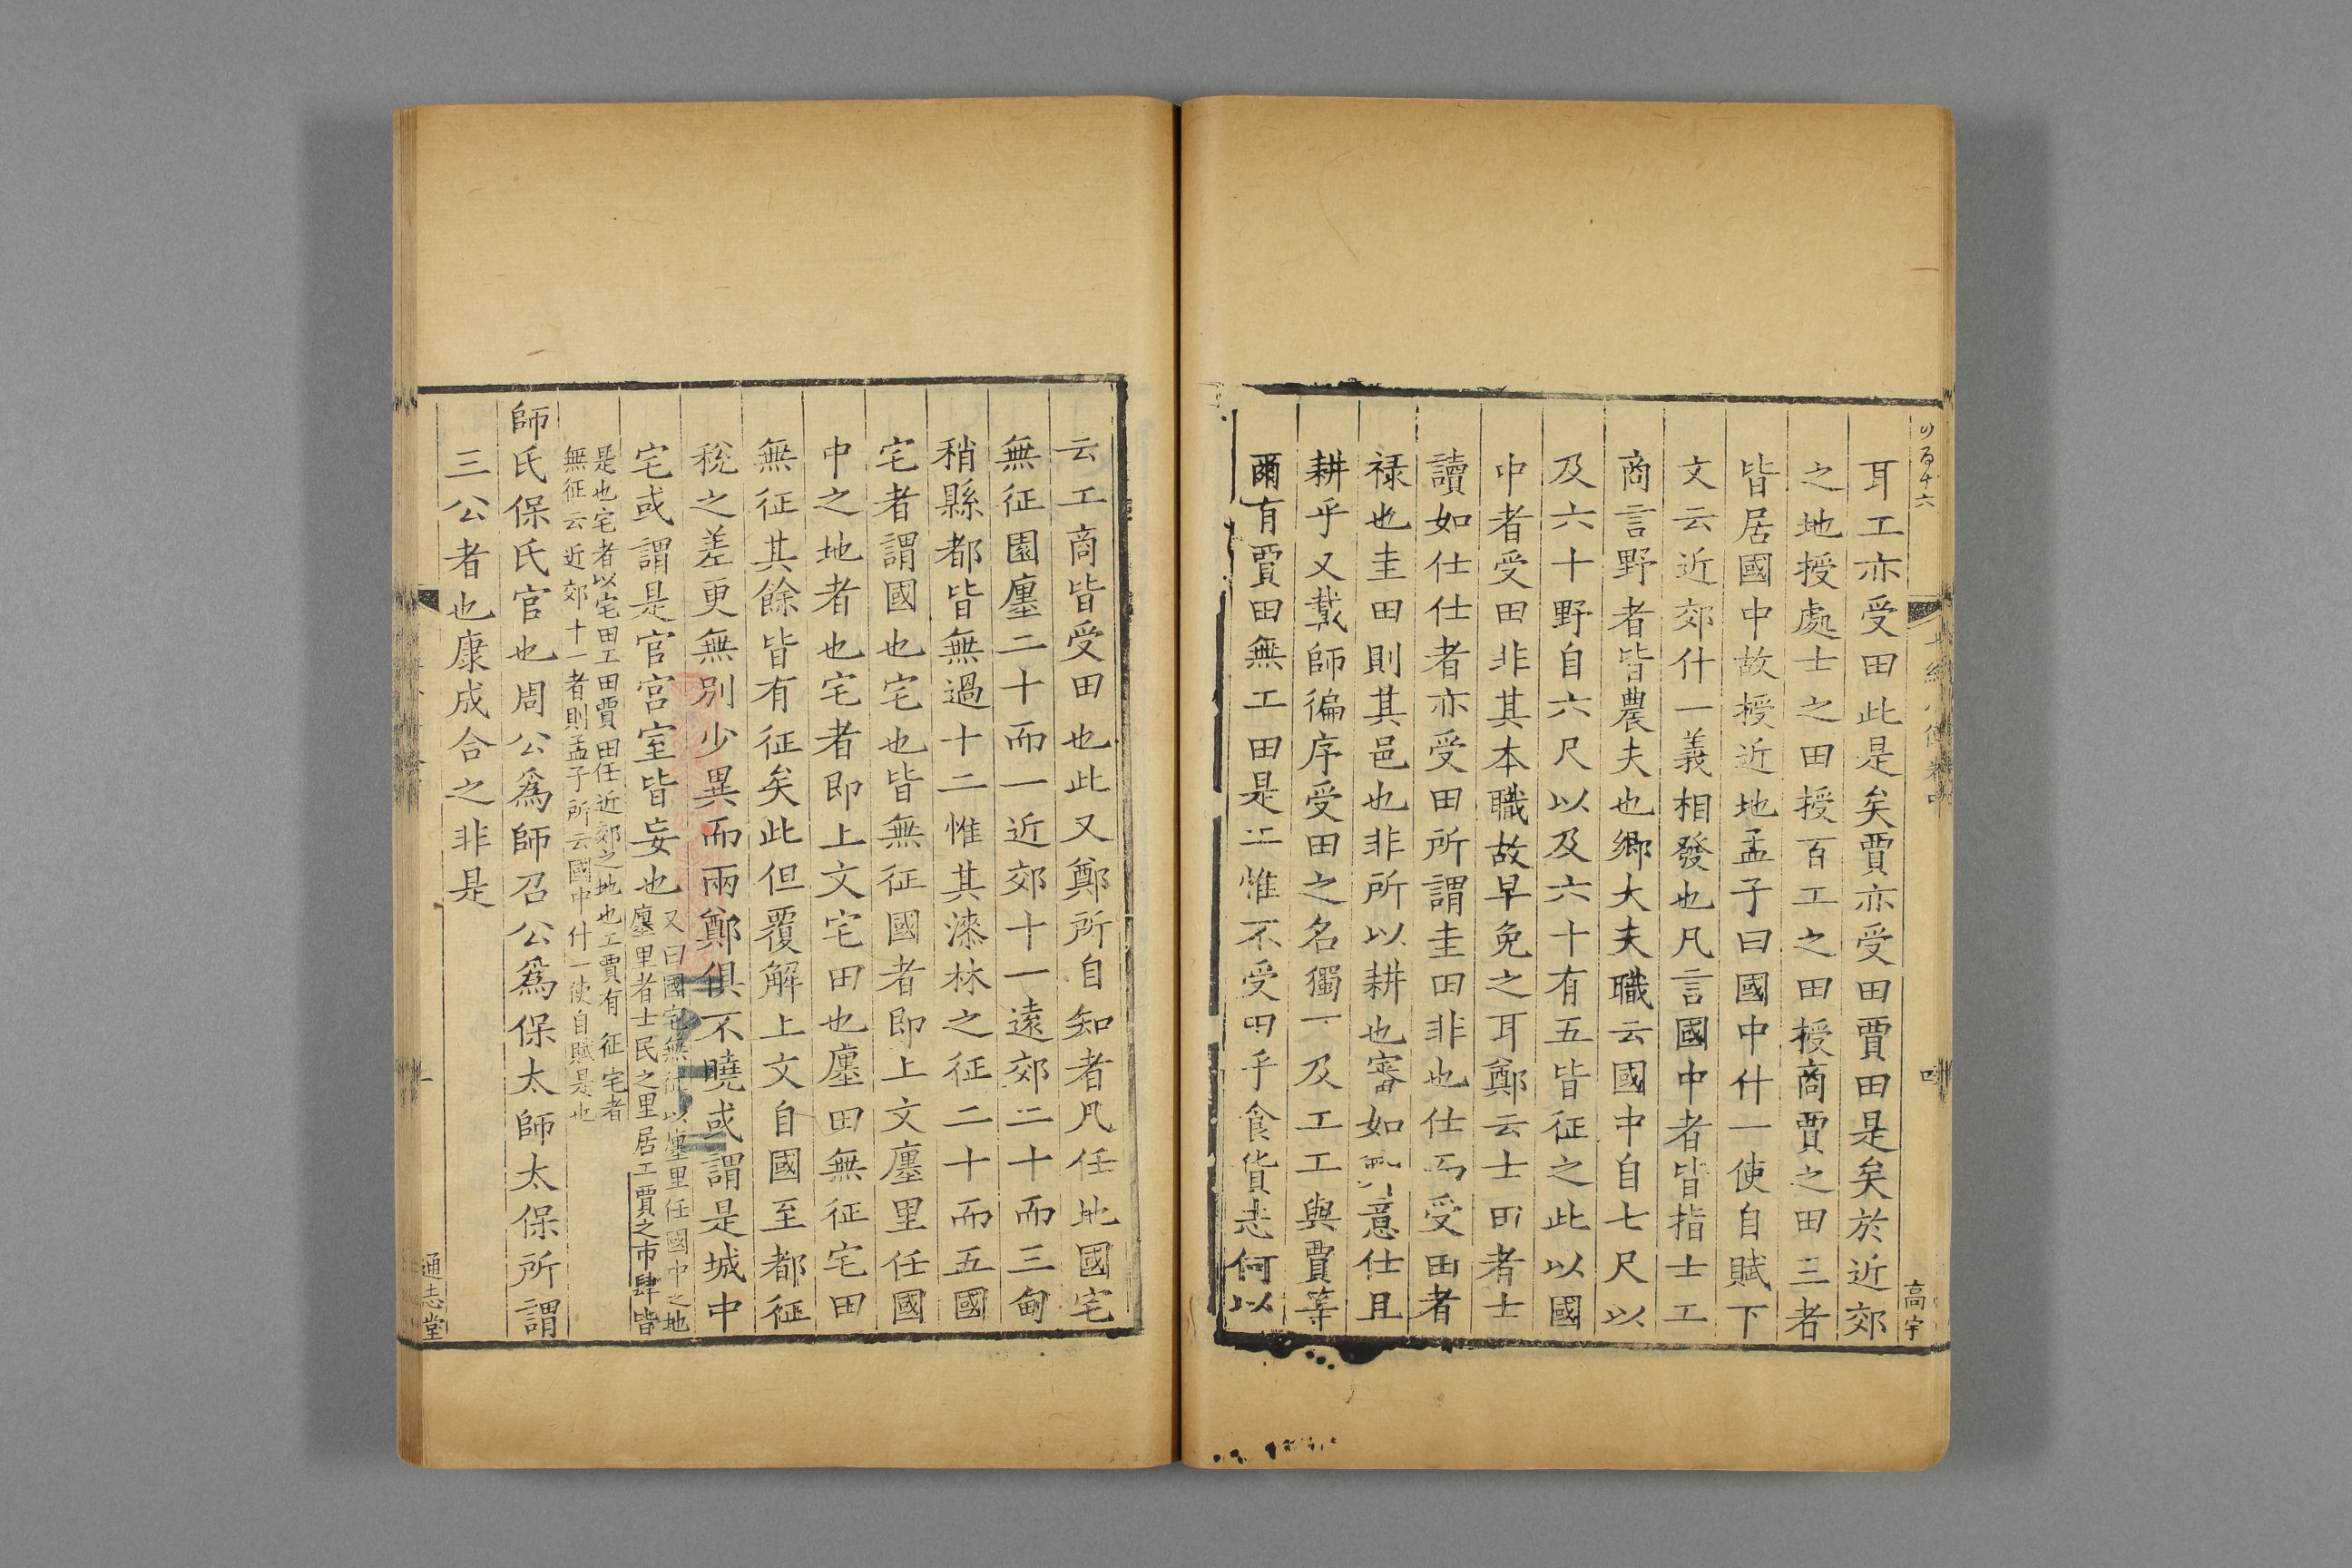 耳工亦受田此是矣賈亦受田賈田是矣於近郊
之地授處士之田授百工之田授商賈之田三者
皆居國中故授近地孟子曰國中什一使自賦下
文云近郊什一義相發也凡言國中者皆指士工
商言野者皆農夫也鄉大夫職云國中自七尺以
及六十野自六尺以及六十有五皆征之此以國
中者受田非其本職故早免之耳鄭云士田者士
讀如仕仕者亦受田所謂圭田非也仕而受田者
祿也圭田則其邑也非所以耕也審如意仕且
耕乎又載師徧序受田之名獨不及工工與賈等
爾有賈田無工田是工惟不受田乎食貨志何以
高宇
云工商皆受田也此又鄭所自知者凡任地國宅
無征園廛二十而一近郊十一遠郊二十而三甸
稍縣都皆無過十二惟其漆林之征二十而五國
宅者謂國也宅也皆無征國者即上文廛里任國
中之地者也宅者即上文宅田也廛田無征宅田
無征其餘皆有征矣此但覆解上文自國至都征
稅之差更無別少異而兩鄭俱不曉或謂是城中
宅或謂是官宮室皆妄也又曰國宅無征以廛里任國中之地
廛里者士民之里居工賈之市肆皆
是也宅者以宅田工田賈田任近郊之地也工賈有征宅者
無征云近郊十一者則孟子所云國中什一使自賦是也
師氏保氏官也周公爲師召公爲保太師太保所謂
三公者也康成合之非是
通志堂